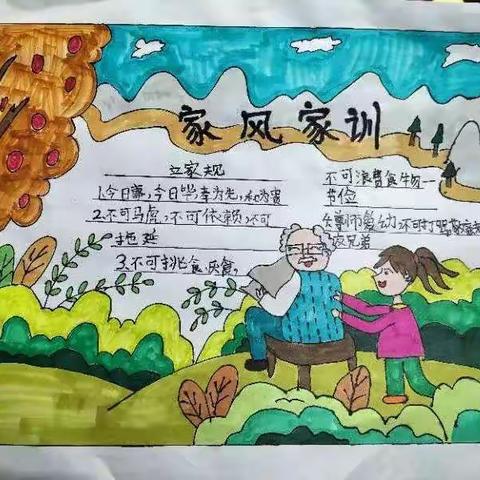 家风家训
立家规
1.今日事,今日毕,孝为先,和为贵
2.不可马虎,不可依赖,不可
拖延
3.不可挑食,厌食,
不可浪费食物一
节俭
尊师爱幼,不可打骂
兄弟